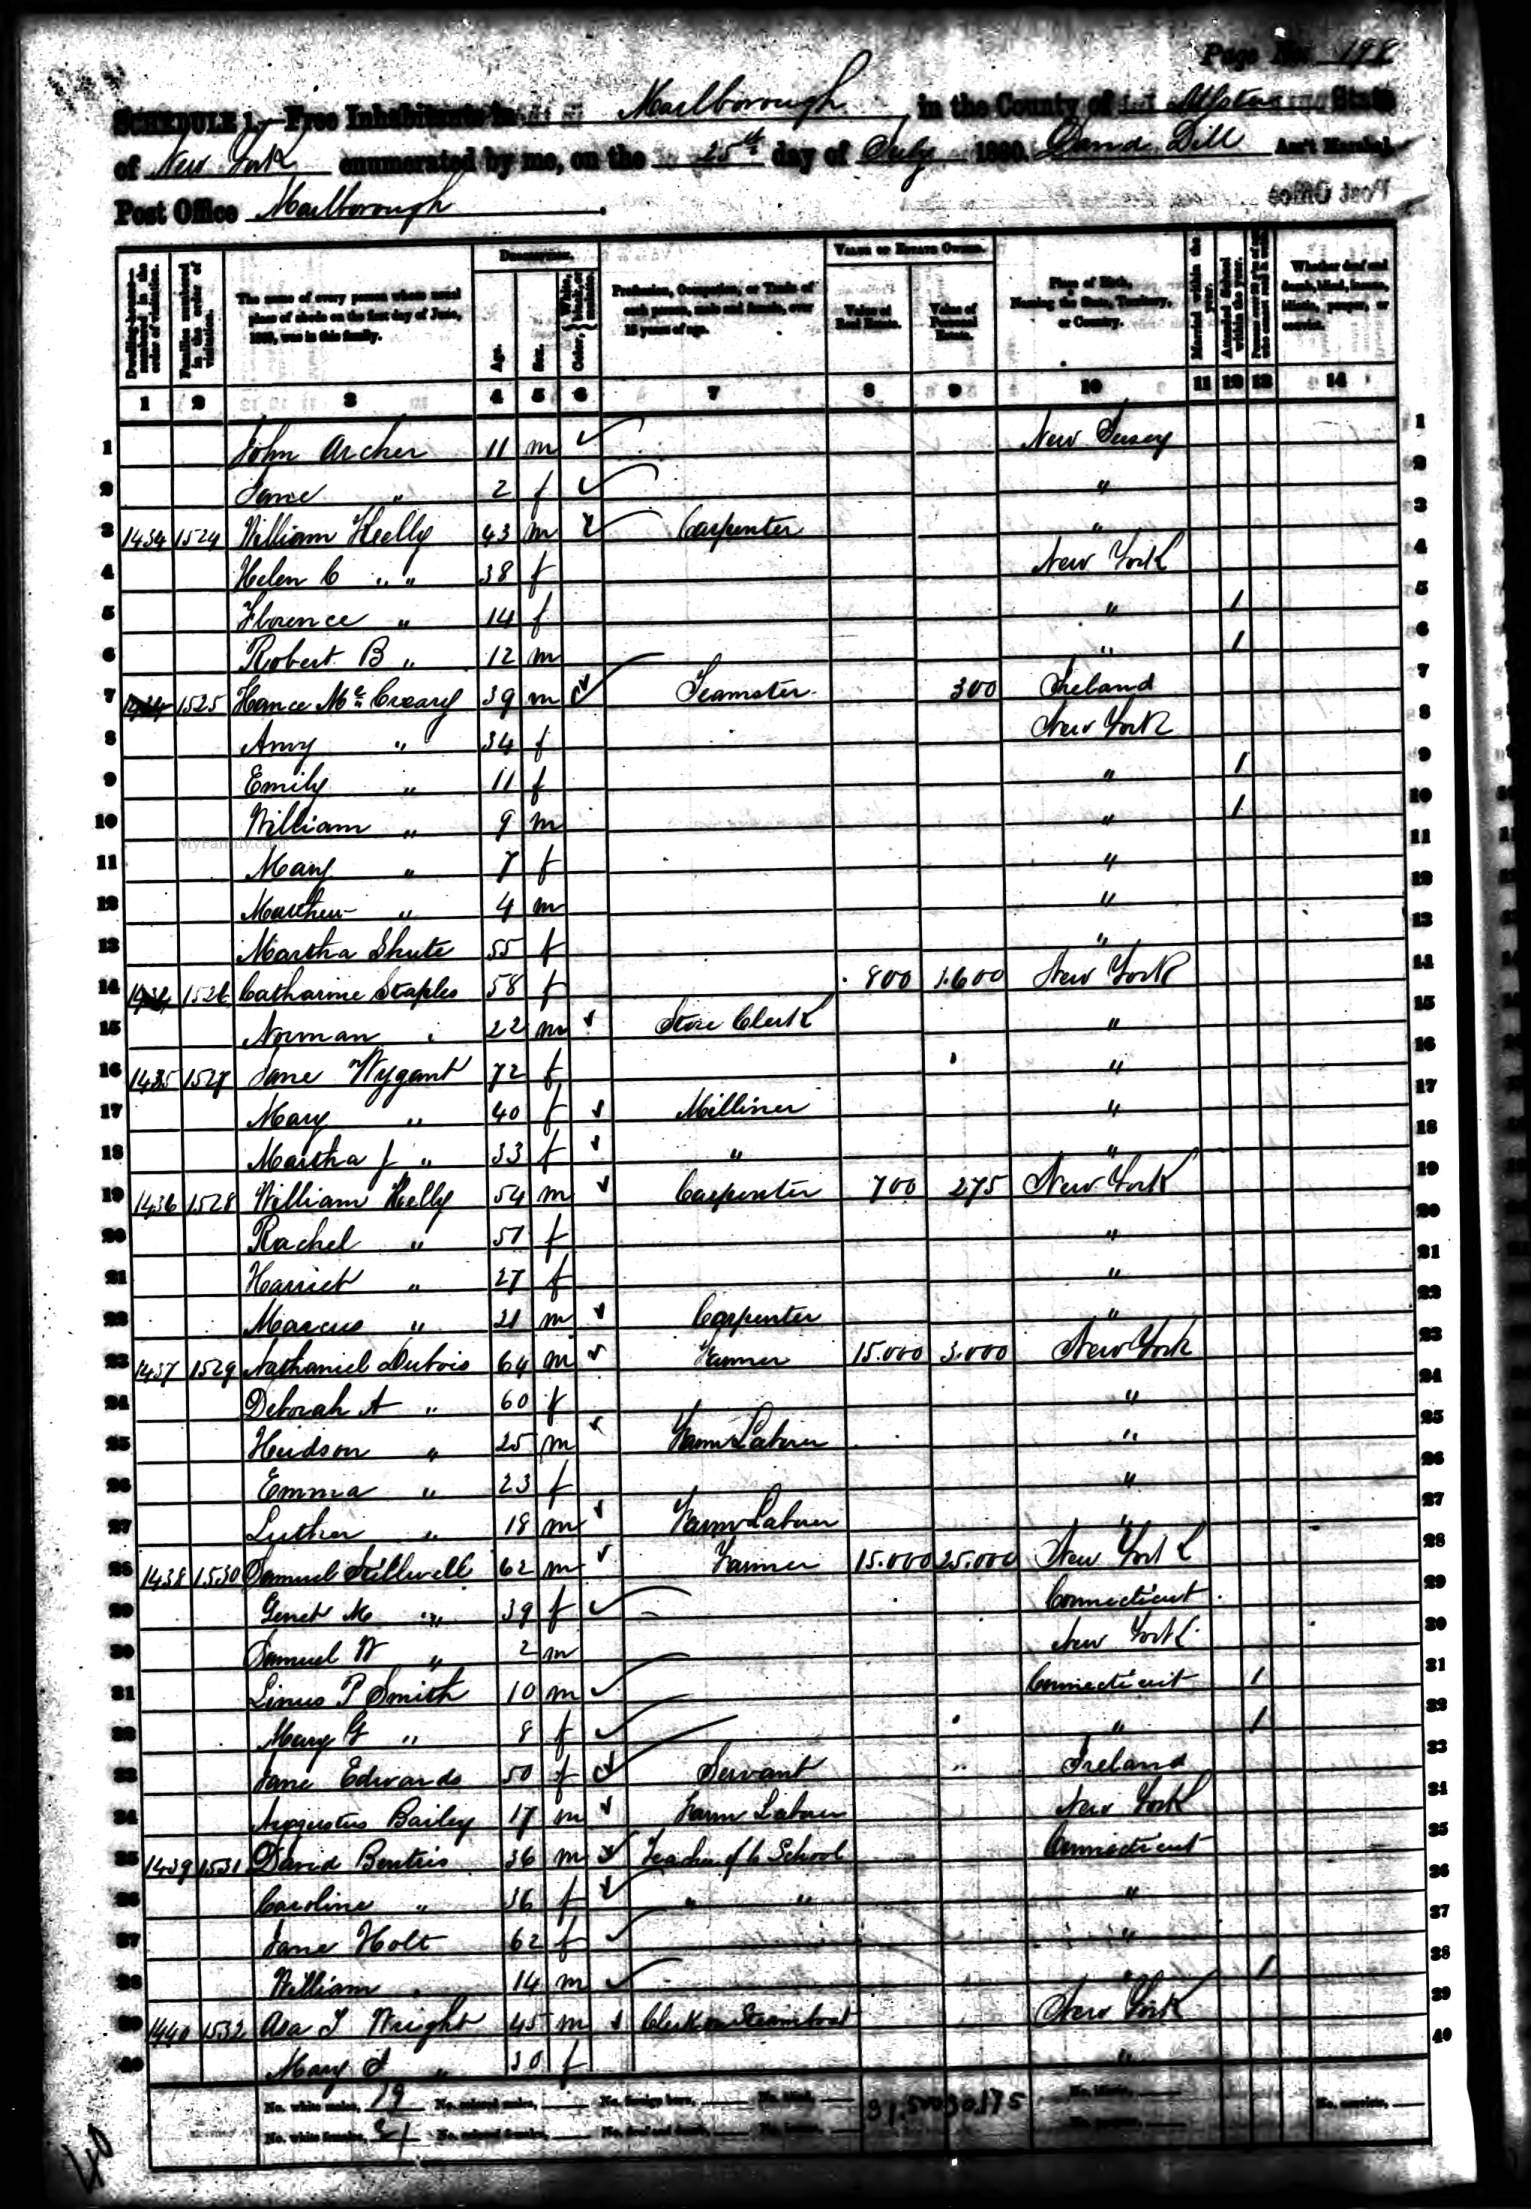 Page No. 198
SCHEDULE 1.—Free Inhabitants in Marlborough in the County of Ulster State
of New York enumerated by me, on the 25th day of July 1860. David Dill Ass't Marshal.
Post Office Marlborough
Dwelling-houses—numbered in the order of visitation. Families numbered in the order of visitation. The name of every person whose usual place of abode on the first day of June, 1860, was in this family. DESCRIPTION. Age. Sex. Color, White, black, or mulatto. Profession, Occupation, or Trade of each person, male and female, over 15 years of age. VALUE OF ESTATE OWNED. Value of Real Estate. Value of Personal Estate. Place of Birth, Naming the State, Territory, or Country. Married within the year. Attended School within the year. Whether deaf and dumb, blind, insane, idiotic, pauper, or convict.
1 2 3 4 5 6 7 8 9 10 11 12 13 14
1 John Archer 11 m New Jersey 1
2 Jane " 2 f " 2
3 1434 1524 William Kelly 43 m Carpenter " 3
4 Helen C " " 38 f New York 4
5 Florence " 14 f " 1 5
6 Robert B " 12 m " 1 6
7 1525 Hance Mc Creary 39 m Teamster 300 Ireland 7
8 Amy " 34 f New York 8
9 Emily " 11 f " 1 9
10 William " 9 m " 1 10
11 Mary " 7 f " 11
12 Matthew " 4 m " 12
13 Martha Shute 55 f " 13
14 1526 Catharine Staples 58 f 800 1.600 New York 14
15 Norman " 22 m Store Clerk " 15
16 1435 1527 Jane Wygant 72 f " 16
17 Mary " 40 f Milliner " 17
18 Martha J " 33 f " " 18
19 1436 1528 William Kelly 54 m Carpenter 700 275 New York 19
20 Rachel " 51 f " 20
21 Harriet " 27 f " 21
22 Marcus " 21 m Carpenter " 22
23 1437 1529 Nathaniel Dubois 64 m Farmer 15.000 3.000 New York 23
24 Deborah A " 60 f " 24
25 Hudson " 25 m Farm Laborer " 25
26 Emma " 23 f " 26
27 Luther " 18 m Farm Laborer " 27
28 1438 1530 Samuel Stillwell 62 m Farmer 15.000 25.000 New York 28
29 Genet M " 39 f Connecticut 29
30 Samuel W " 2 m New York 30
31 Linus P Smith 10 m Connecticut 1 31
32 Mary G " 8 f " 1 32
33 Jane Edwards 50 f Servant Ireland 33
34 Augustus Bailey 17 m Farm Laborer New York 34
35 1439 1531 David 36 m Teacher of C School Connecticut 35
36 Caroline " 36 f " " " 36
37 Jane Holt 62 f " 37
38 William " 14 m " 1 38
39 1440 1532 Asa T Wright 45 m Clerk on Steamboat New York 39
40 Mary " 30 f " 40
No. white males, 19 No. colored males, No. foreign born, No. blind, 31,500 30,175 No. idiotic, No. convicts,
No. white females, 21 No. colored females, No. deaf and dumb, No. insane, No. paupers,
40
MyFamily.com